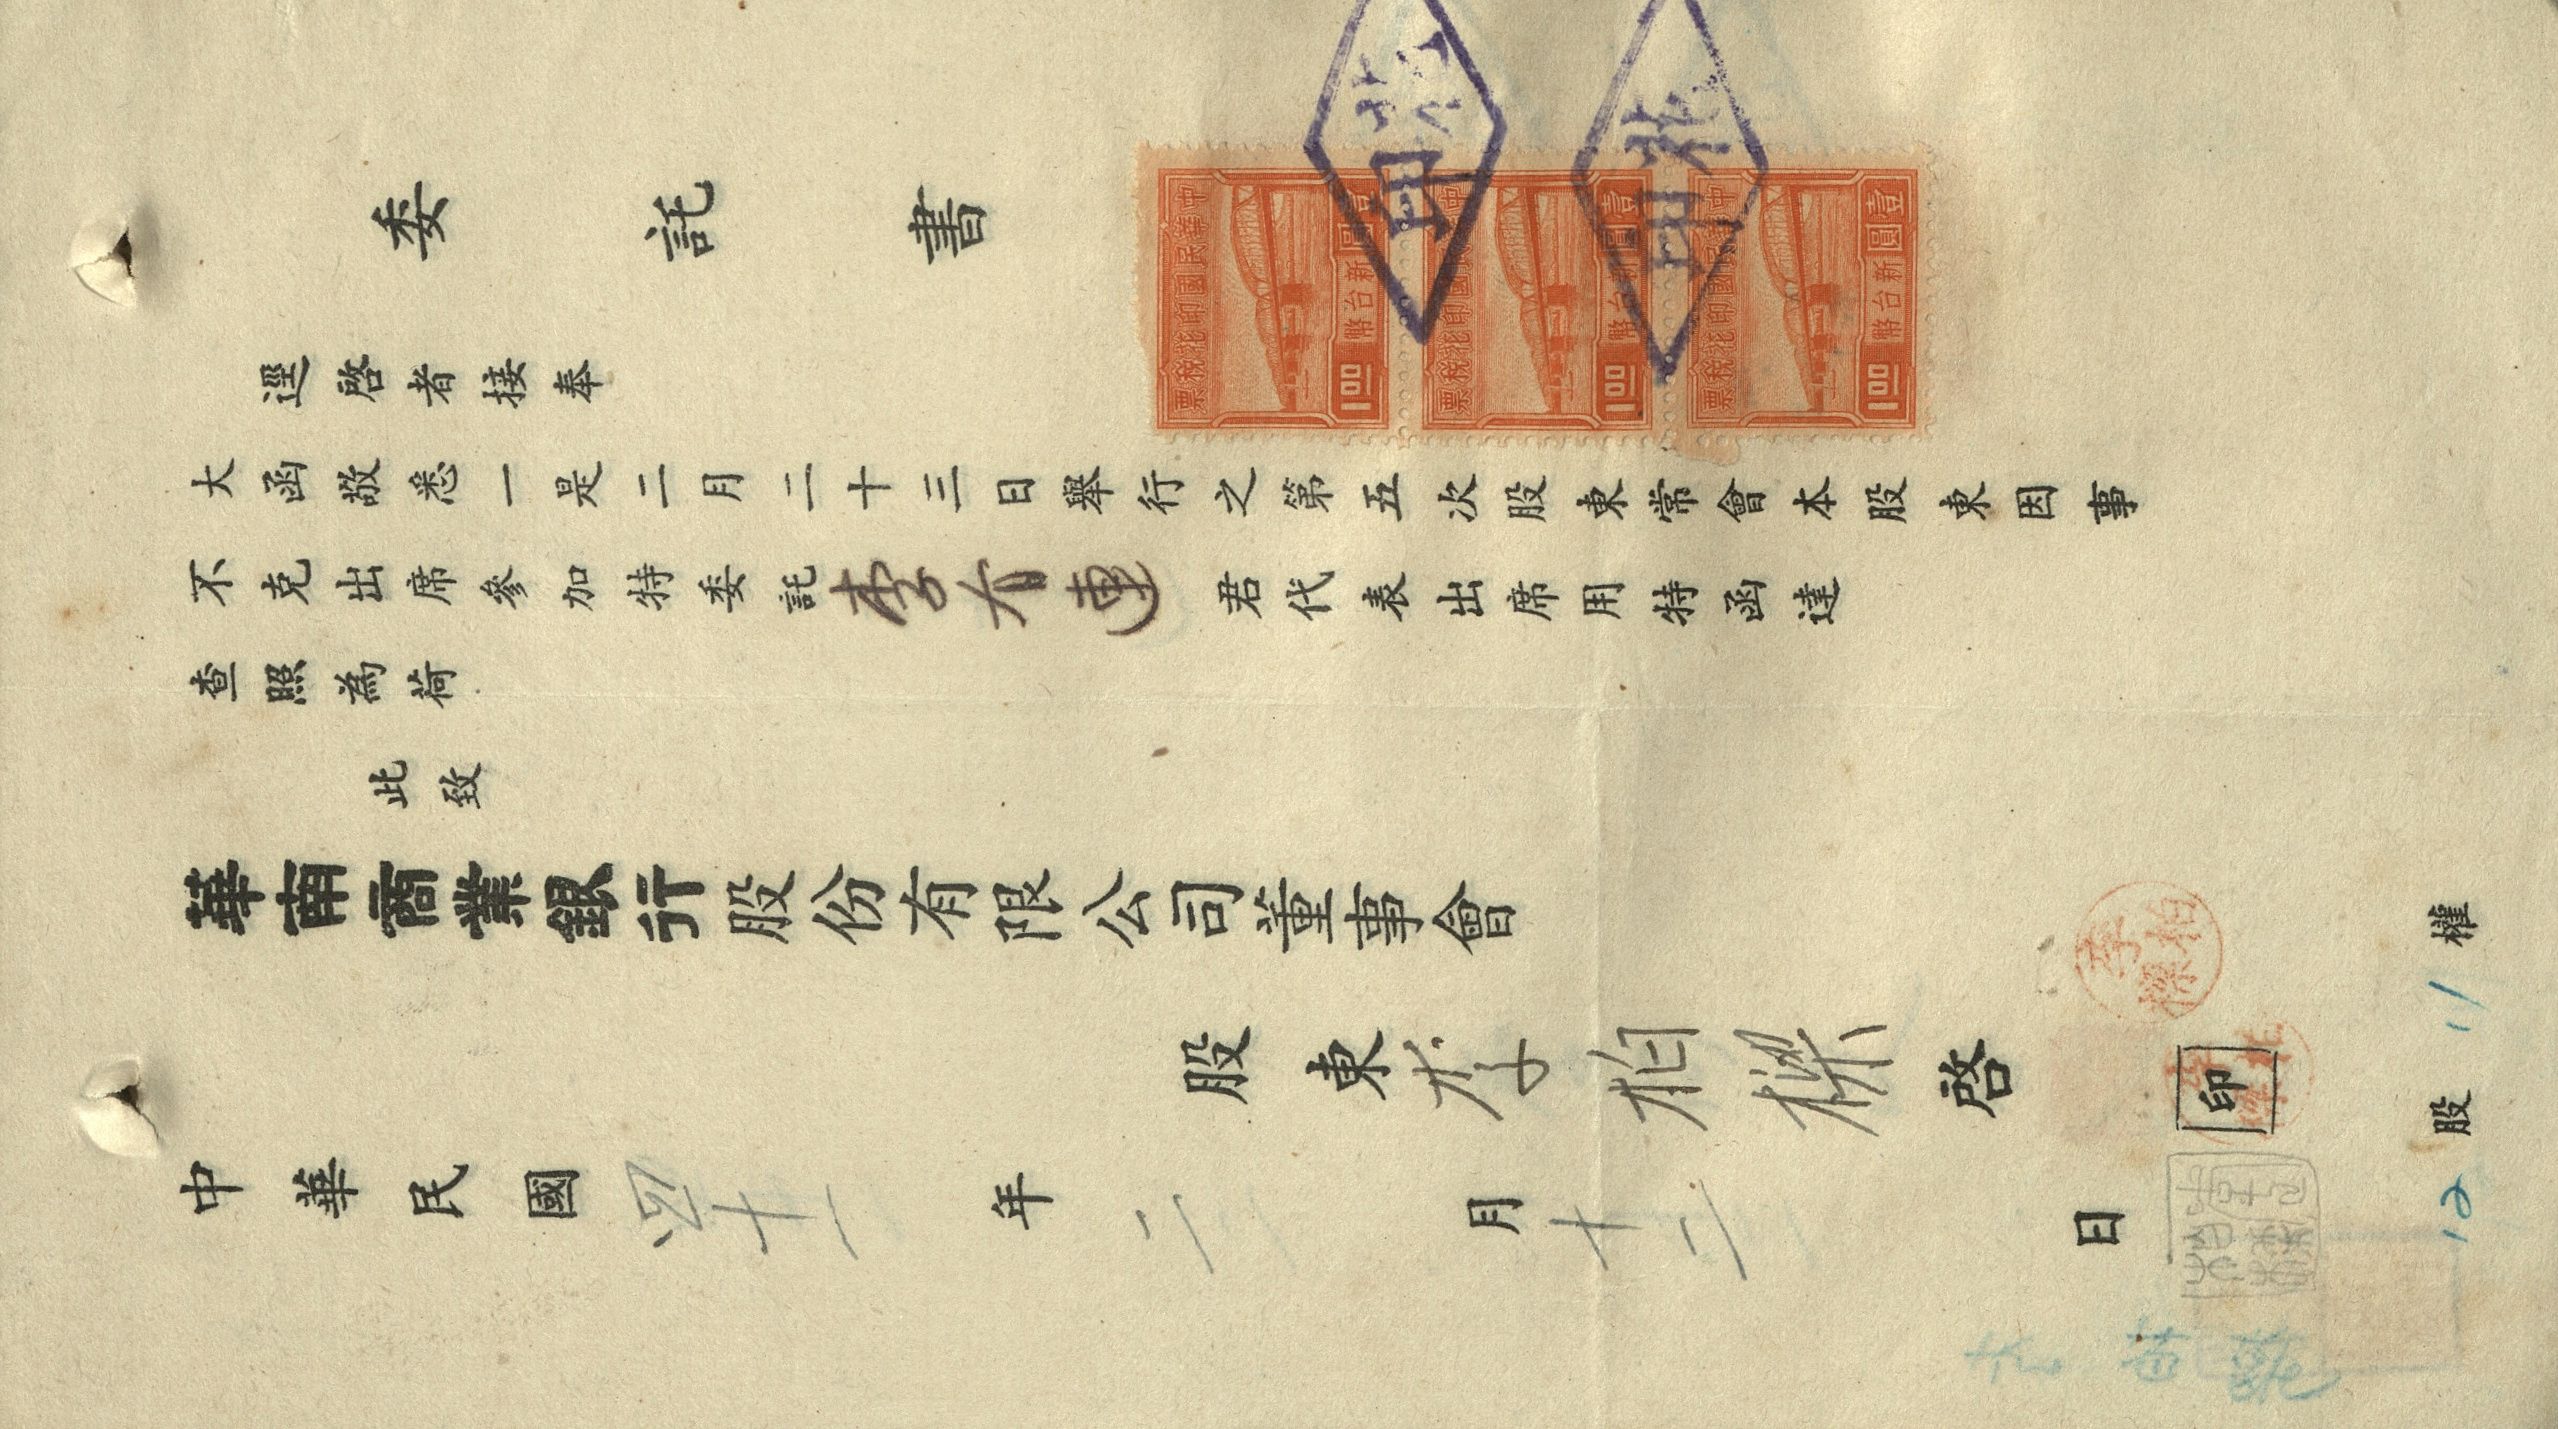 委託書
逕啓者接奉
大函敬悉一是二月二十三日舉行之第五次股東常會本股東因事
不克出席參加特委託李有連君代表出席用特函達
查照為荷
此致
華南商業銀行股份有限公司董事會
股東李柏樑啓
印
中華民國四十一年二月十二日
12股11權
中華民國印花稅票
壹圓
新台幣
1.00
中華民國印花稅票
壹圓
新台幣
1.00
中華民國印花稅票
壹圓
新台幣
1.00
李柏樑